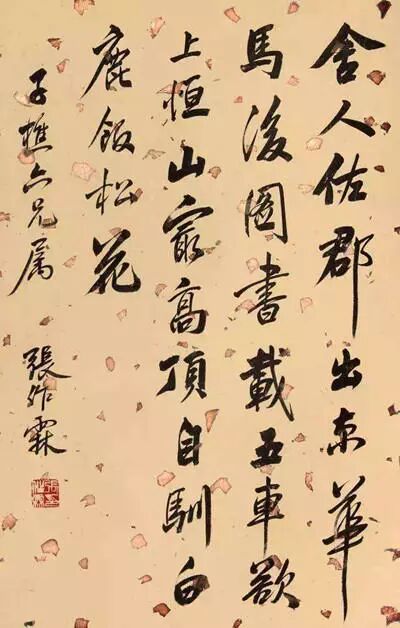 舍人佐郡出東華
馬後圖書載五車欲
上恒山最高頂自馴白
鹿飯松花
子樵六兄属
張作霖